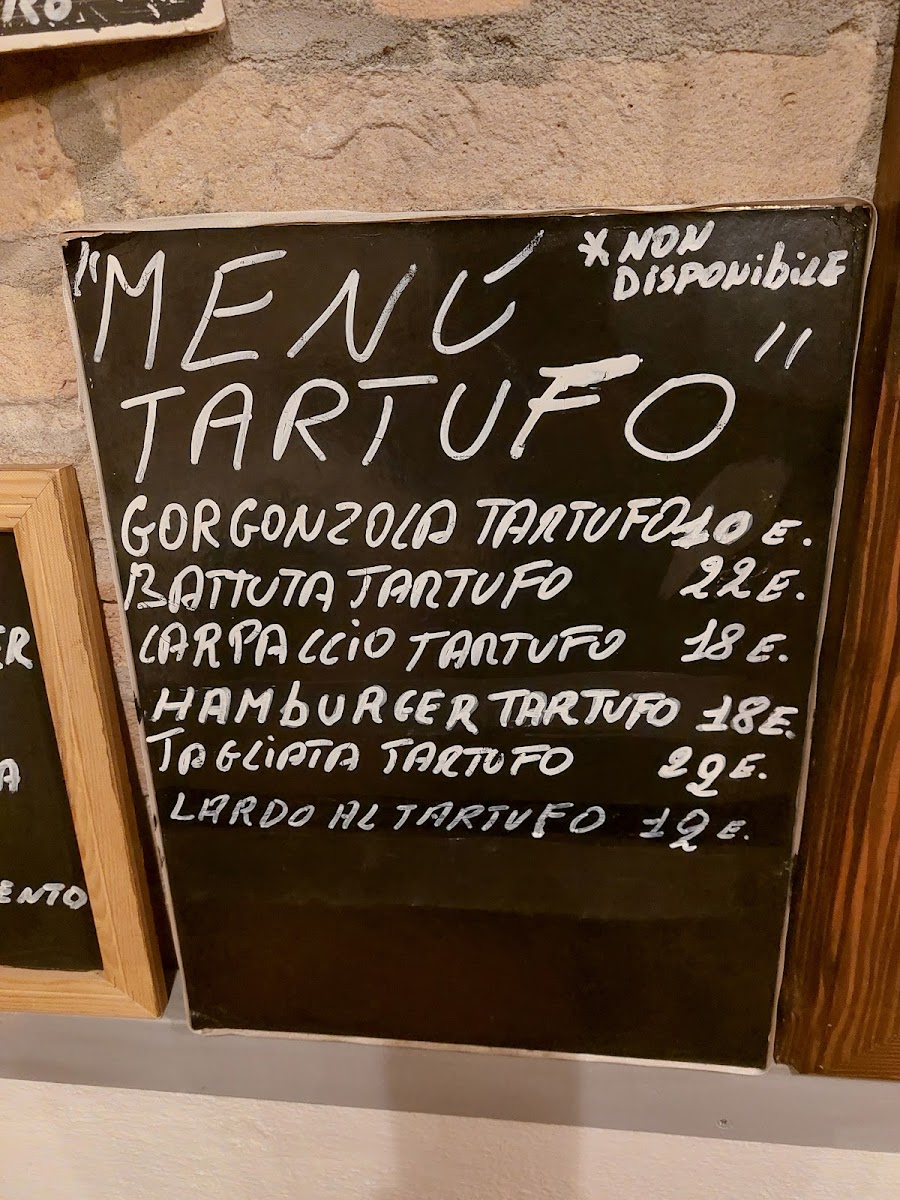 "MENÚ
* NON
DISPONIBILE
TARTUFO"
GORGONZOLA TARTUFO 10 E.
BATTUTA TARTUFO 22 E.
CARPACCIO TARTUFO 18 E.
HAMBURGER TARTUFO 18 E.
TAGLIATA TARTUFO 22 E.
LARDO AL TARTUFO 12 E.
ER
A
ENTO